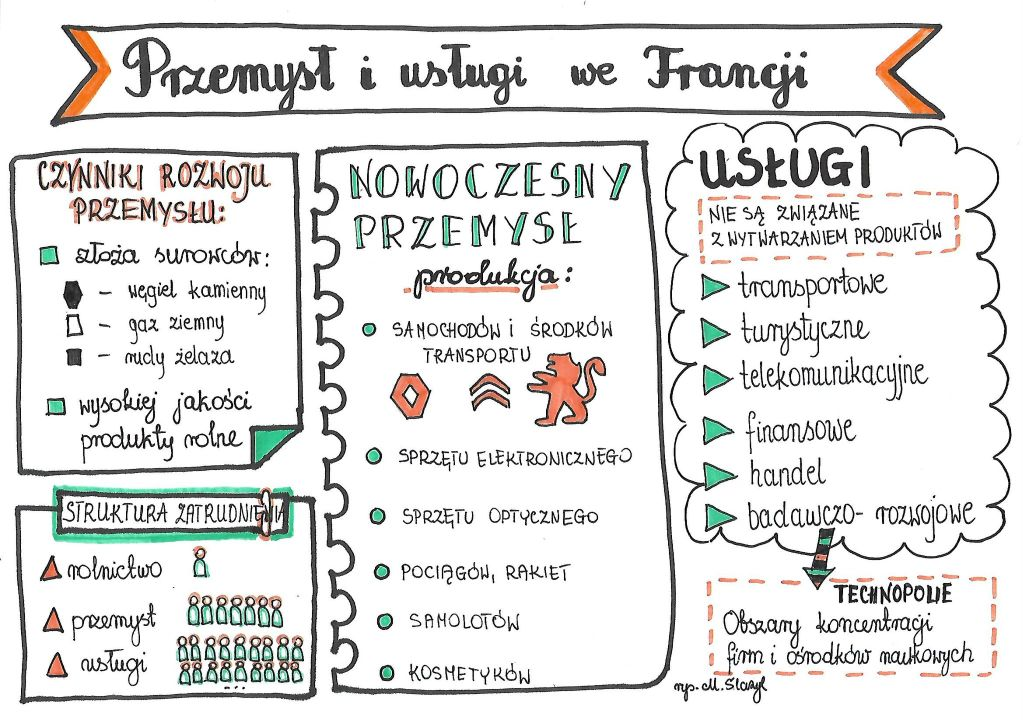 Przemysł i usługi we Francji
CZYNNIKI ROZWOJU
PRZEMYSŁU:
złoża surowców:
- węgiel kamienny
- gaz ziemny
- rudy żelaza
wysokiej jakości
produkty rolne
STRUKTURA ZATRUDNIENIA
rolnictwo
przemysł
usługi
...
NOWOCZESNY
PRZEMYSŁ
produkcja:
SAMOCHODÓW i ŚRODKÓW
TRANSPORTU
SPRZĘTU ELEKTRONICZNEGO
SPRZĘTU OPTYCZNEGO
POCIĄGÓW, RAKIET
SAMOLOTÓW
KOSMETYKÓW
USŁUGI
NIE SĄ ZWIĄZANE
Z WYTWARZANIEM PRODUKTÓW
transportowe
turystyczne
telekomunikacyjne
finansowe
handel
badawczo- rozwojowe
TECHNOPOLIE
Obszary koncentracji
firm i ośrodków naukowych
rys. M.